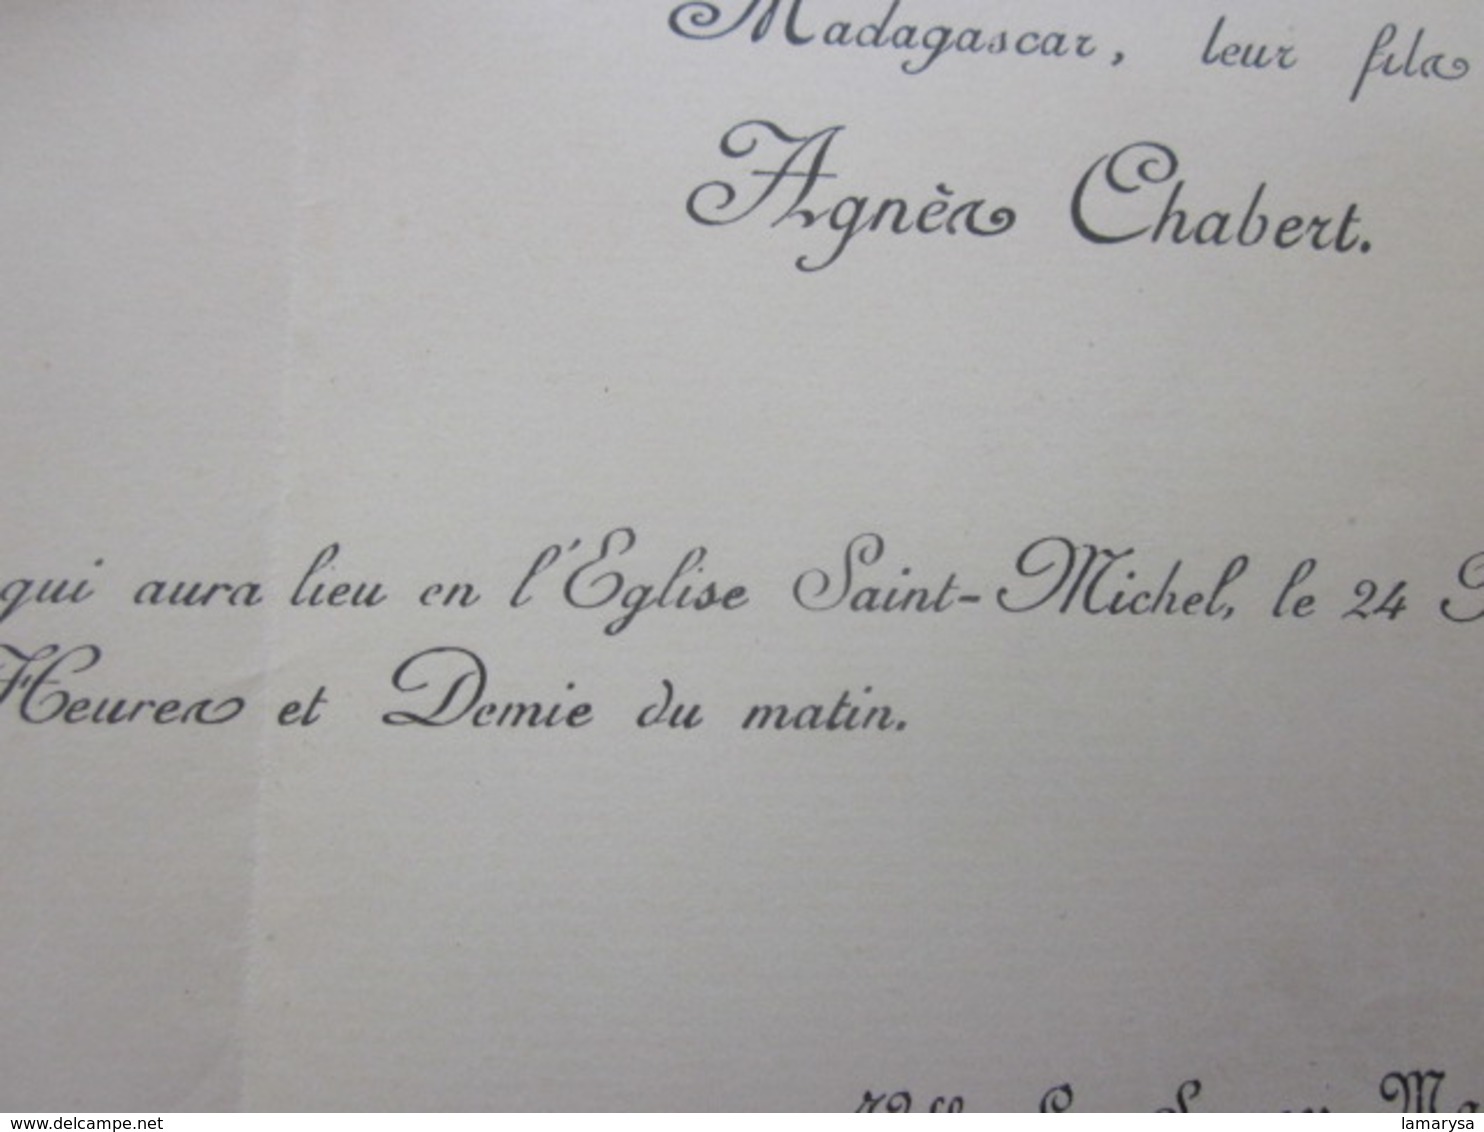 Madagascar, leur fils
Agnès Chabert.
qui aura lieu en l'Eglise Saint-Michel, le 24
Heures et Demie du matin.
www.delcampe.net
lamarysa